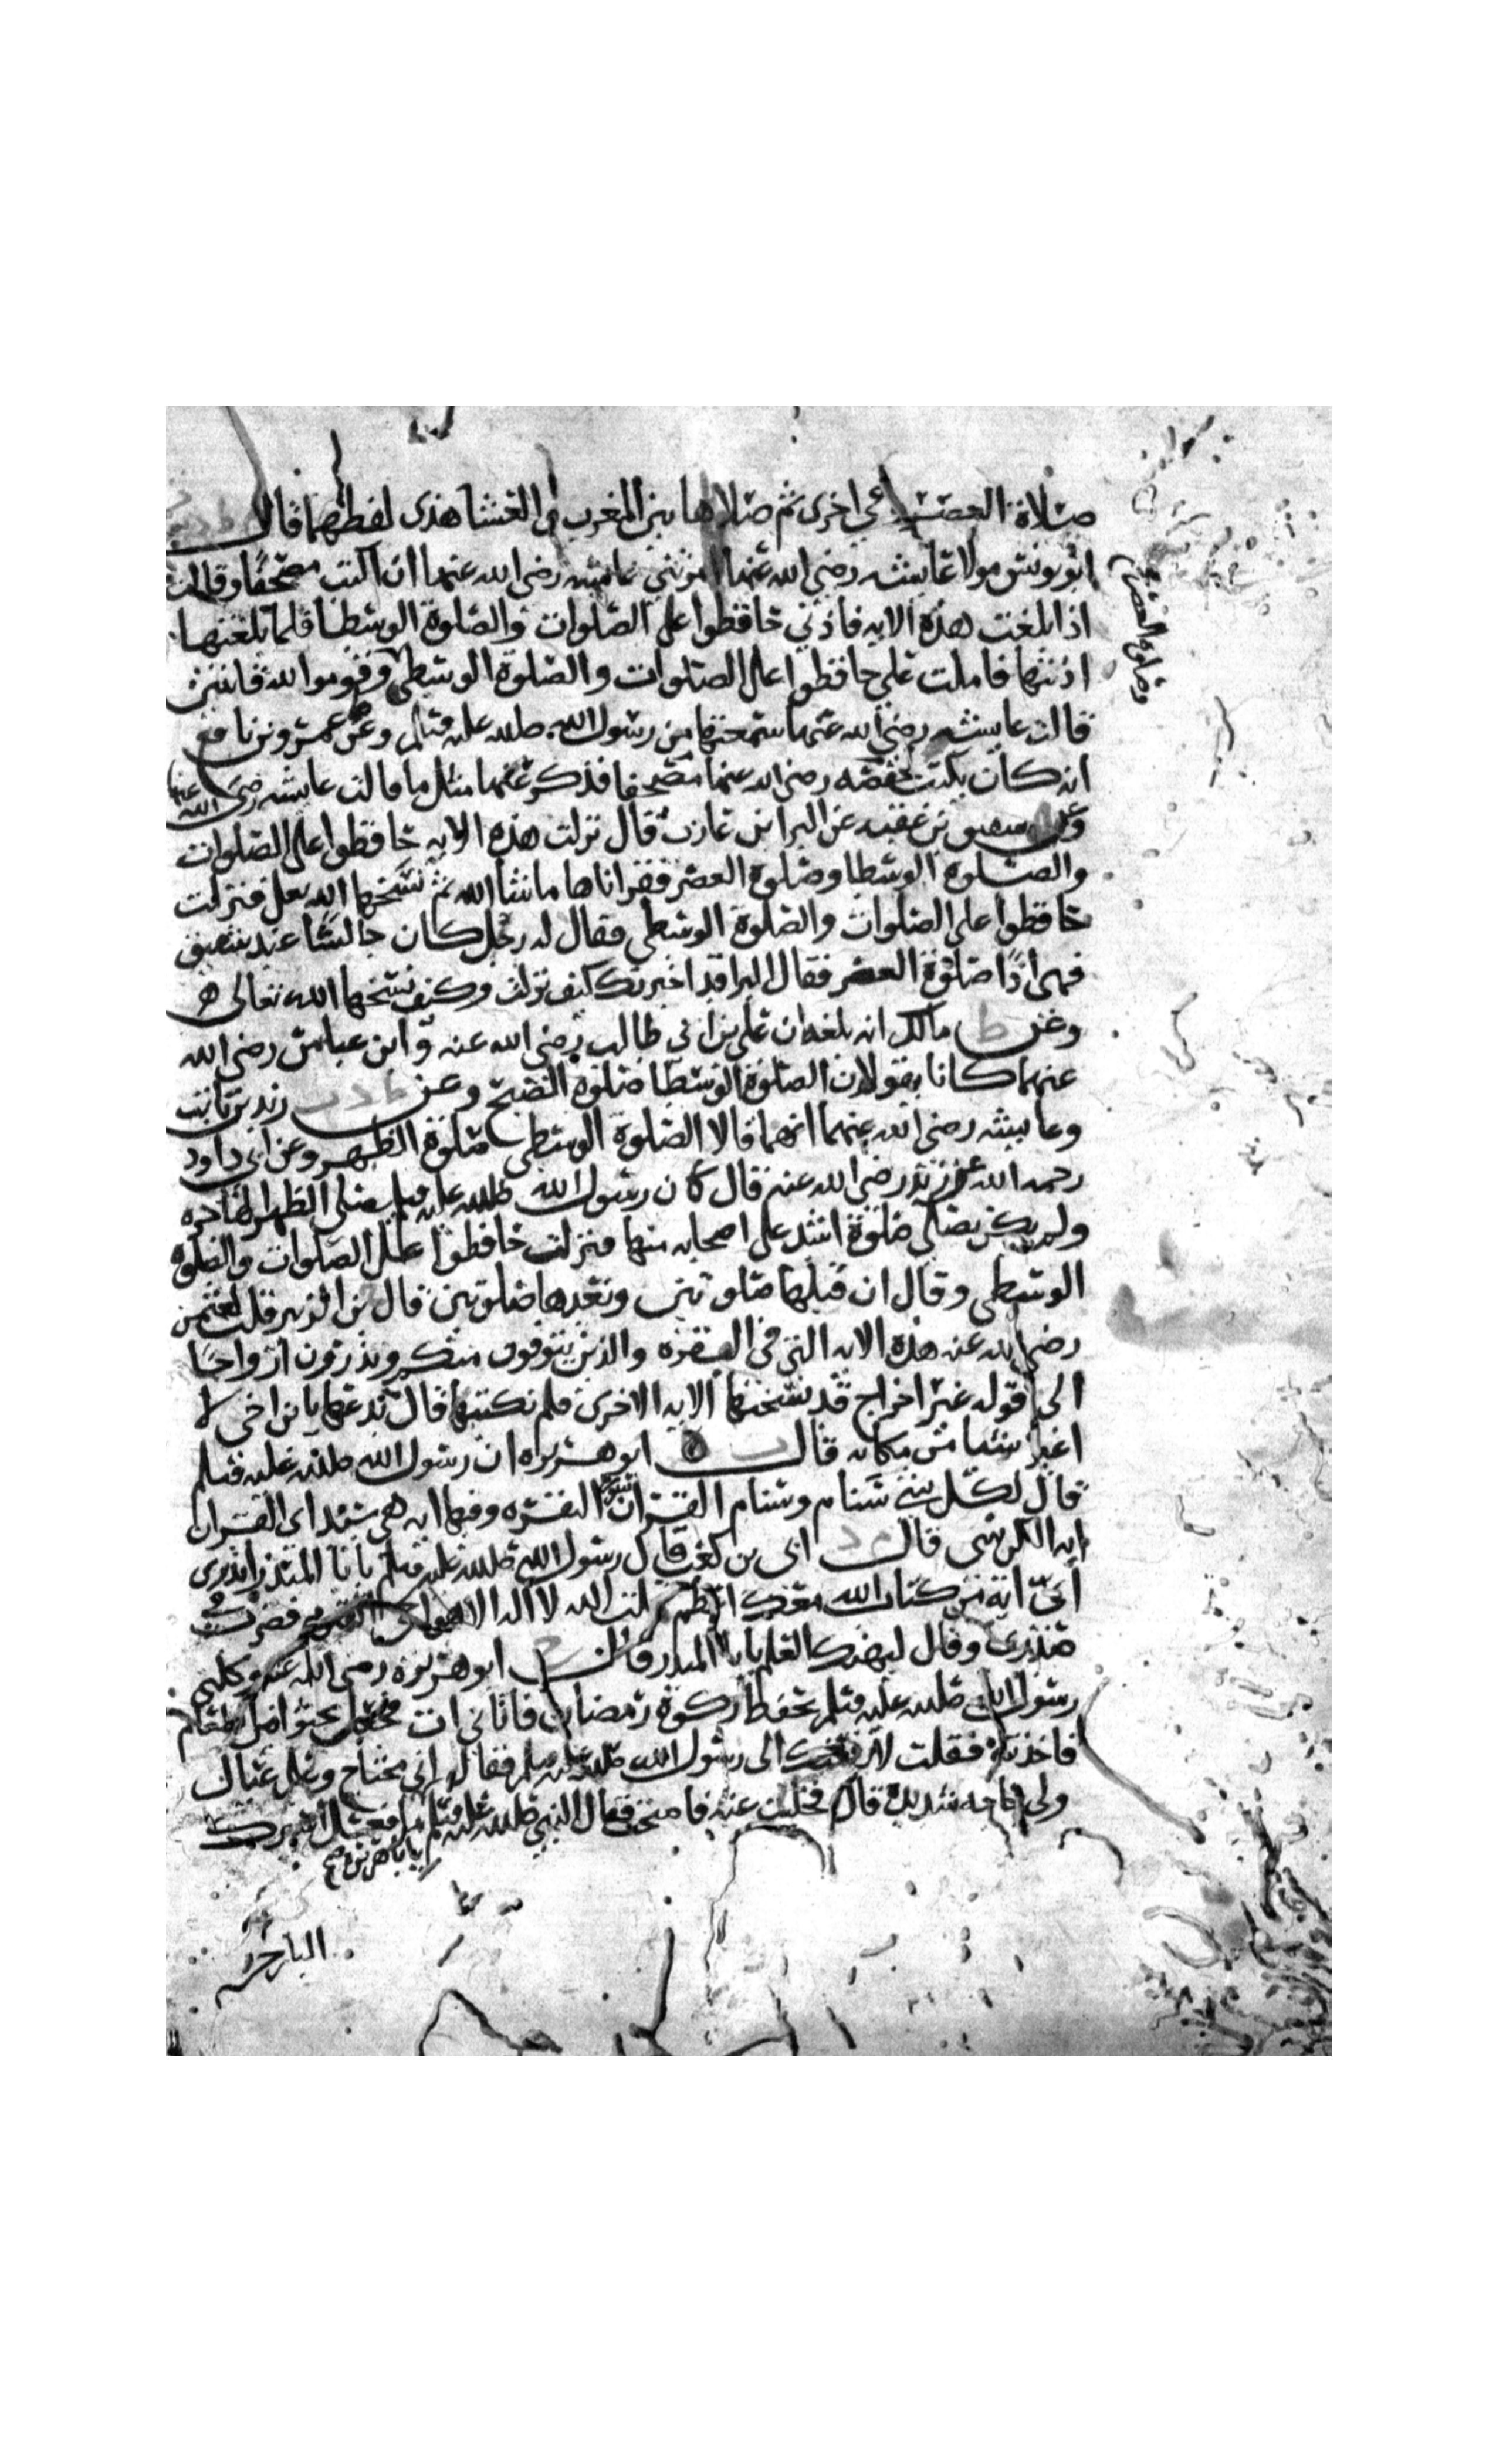 صلاة العصر وفي اخرى ثم صلاها بين المغرب والعشا هذى لفظهما قال
ابو يونس مولا عايشه رضي الله عنها امرتني عايشه رضي الله عنها ان اكتب مصحفا وقالت
اذا بلغت هذه الايه فاذني حافظوا على الصلوات والصلوة الوسطا فلما بلغتها
اذنتها فاملت علي حافظوا على الصلوات والصلوة الوسطى وقوموا لله قانتين
وصلوة العصر
قالت عايشه رضي الله عنها سمعتها من رسول الله صلى الله عليه وسلم وعن عمرو بن نافع
انه كان يكتب لحفصه رضي الله عنها مصحفا فذكر عنها مثل ما قالت عايشه رضي الله عنها
وعن شقيق بن عقبه عن البرا بن عازب قال نزلت هذه الايه حافظوا على الصلوات
والصلوه الوسطا وصلوة العصر فقراناها ما شا الله ثم نسخها الله فنزلت
حافظوا على الصلوات والصلوة الوسطى فقال له رجل كان جالسا عند شقيق
فهي اذا صلوة العصر فقال البرا قد اخبرتك كيف نزلت وكيف نسخها الله تعالى
وعن ط مالك انه بلغه ان علي بن ابي طالب رضي الله عنه وابن عباس رضي الله
عنهما كانا يقولان الصلوة الوسطا صلوة الصبح وعن ط د ت زيد بن ثابت
وعايشه رضي الله عنهما انهما قالا الصلوة الوسطى صلوة الظهر وعن ابي داود
رحمه الله عن زيد رضي الله عنه قال كان رسول الله صلى الله عليه وسلم يصلي الظهر بالهاجره
ولم يكن يصلي صلوة اشد على اصحابه منها فنزلت حافظوا على الصلوات والصلوة
الوسطى وقال ان قبلها صلوتين وبعدها صلوتين قال بن الزبير قلت لعثمن
رضي الله عنه هذه الايه التي في البقره والذين يتوفون منكم ويذرون ازواجا
الى قوله غير اخراج قد نسختها الايه الاخرى فلم تكتبها قال تدعها يابن اخي لا
اغير شيا من مكانه قال ت ابو هريره ان رسول الله صلى الله عليه وسلم
قال لكل شي سنام وسنام القران سورة البقره وفيها ايه هي سيدة اي القران
ايه الكرسي قال م د ابي بن كعب قال رسول الله صلى الله عليه وسلم يا ابا المنذر اتدري
اي اية من كتاب الله معك اعظم قلت الله لا اله الا هو الحي القيوم فضرب في
صدري وقال ليهنك العلم يا ابا المنذر قال خ ابو هريره رضي الله عنه وكلني
رسول الله صلى الله عليه وسلم بحفظ زكوة رمضان فاتاني ات فجعل يحثو من الطعام
فاخذته فقلت لارفعنك الى رسول الله صلى الله عليه وسلم فقال اني محتاج وعلي عيال
ولي حاجه شديدة قال فخليت عنه فاصبحت فقال النبي صلى الله عليه وسلم ما فعل اسيرك
يا ابا هريره صح
البارحه